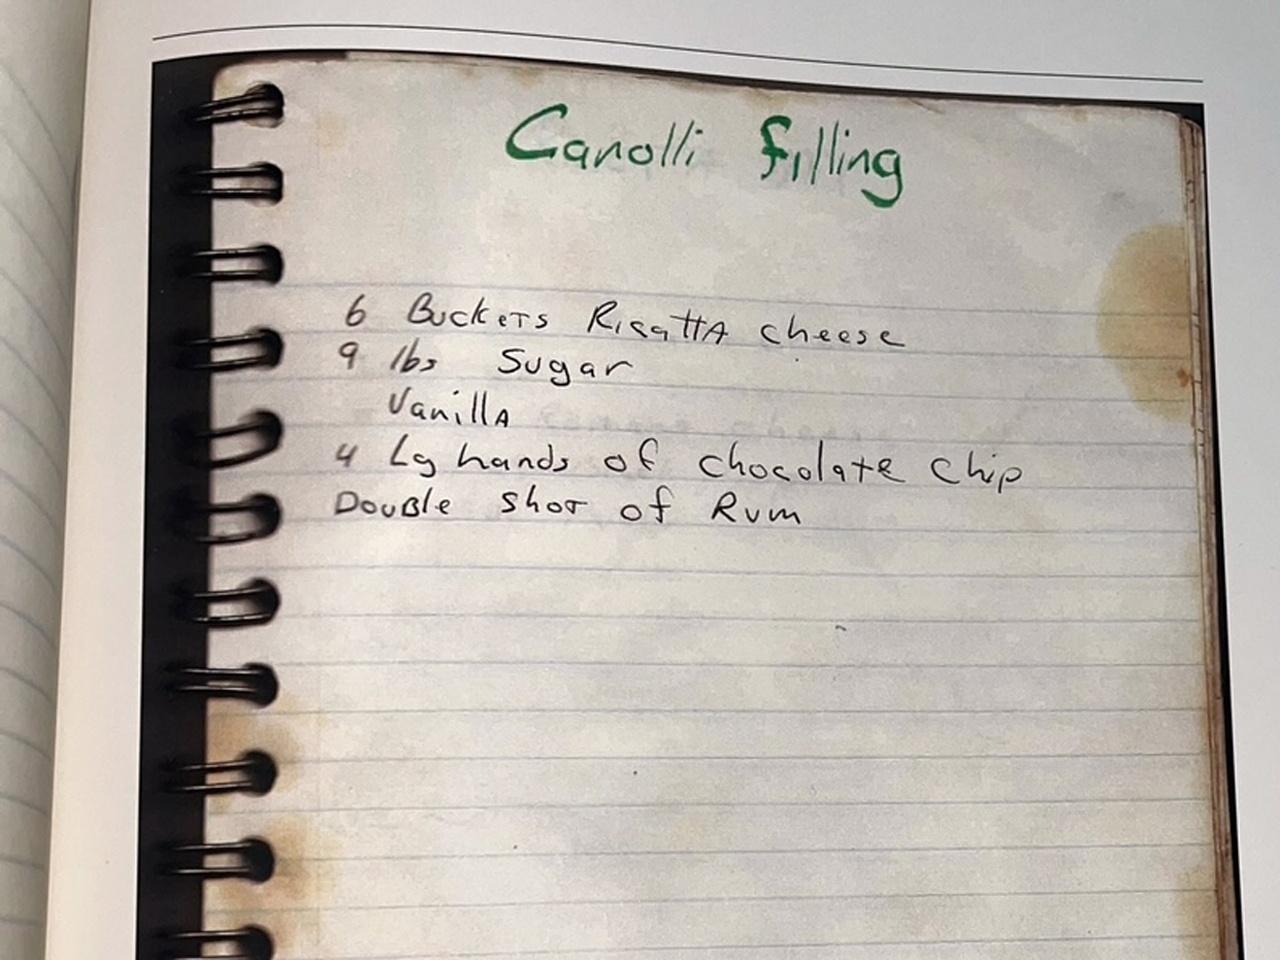 Canolli filling
6 Buckets Ricatta cheese
9 lbs Sugar
Vanilla
4 Lg hands of chocolate chip
Double shot of Rum